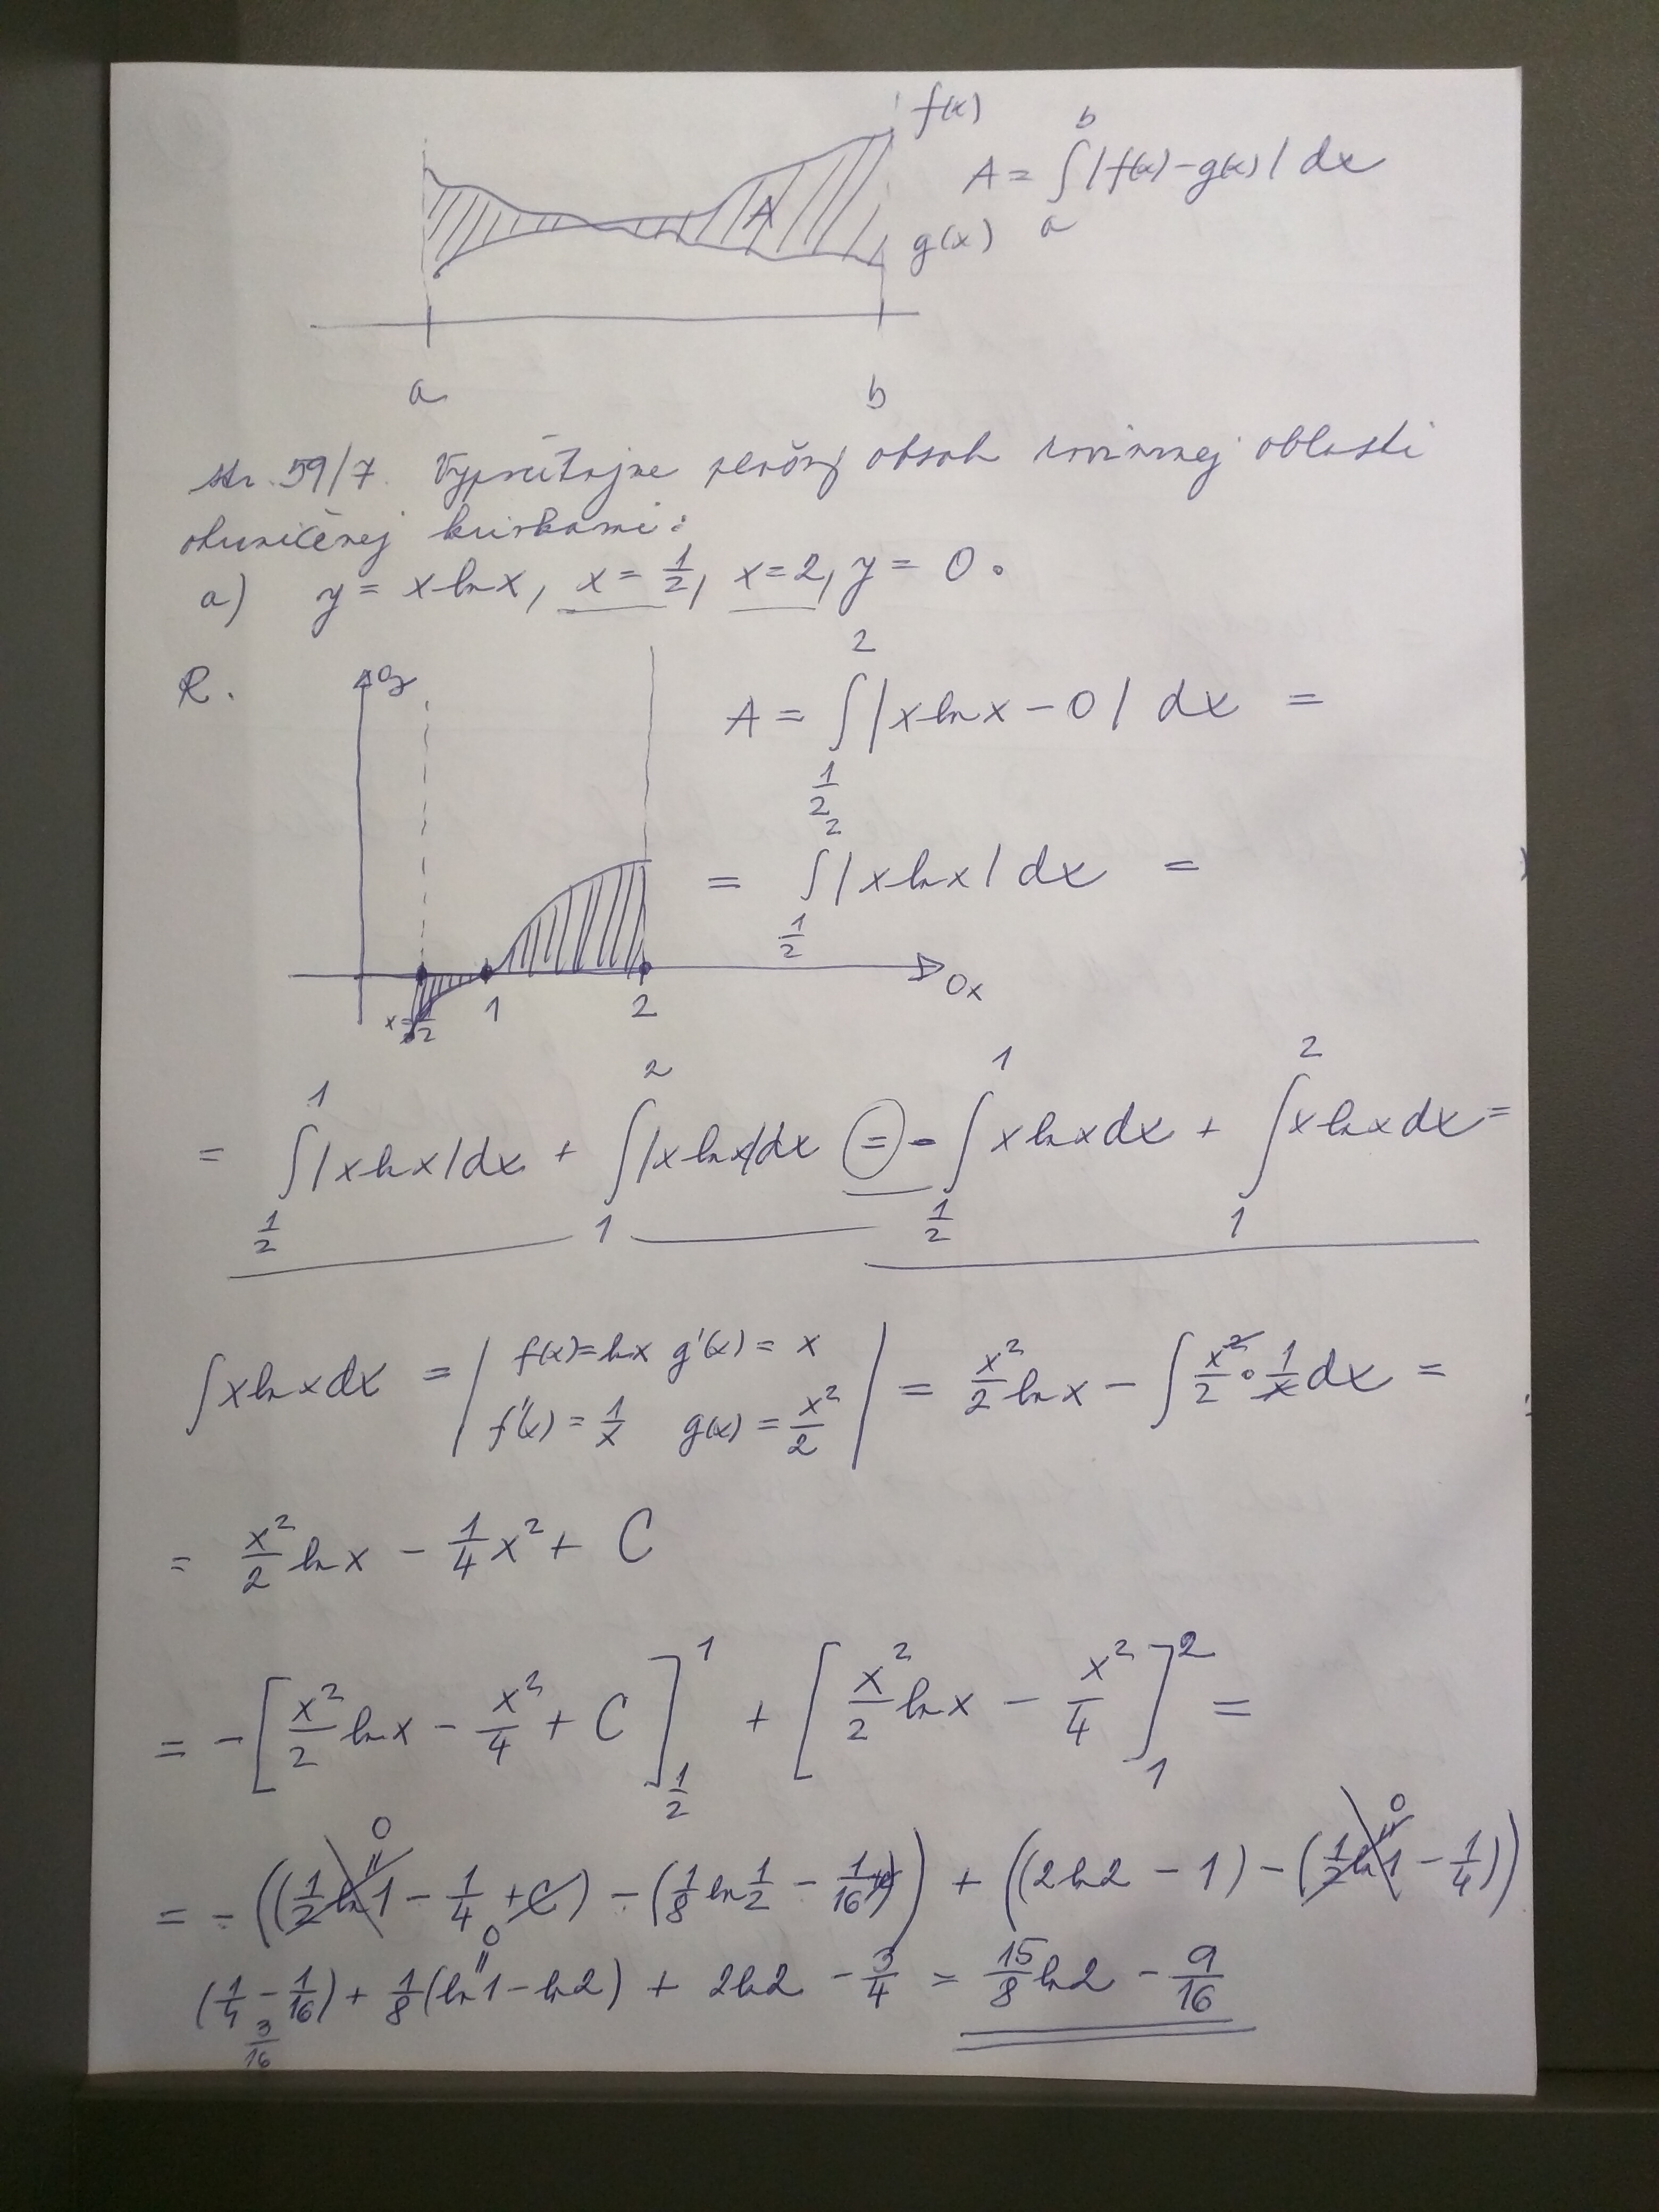 f(x)
A = ∫_a^b |f(x) - g(x)| dx
A
g(x)
a b
str. 59/7. Vypočítajne plošný obsah rovinnej oblasti
ohraničenej krivkami:
a) y = x ln x, x = 1/2, x = 2, y = 0.
R. Oy A = ∫_{1/2}^2 |x ln x - 0| dx =
= ∫_{1/2}^2 |x ln x| dx =
x = 1/2 1 2 Ox
= ∫_{1/2}^1 |x ln x| dx + ∫_1^2 |x ln x| dx = - ∫_{1/2}^1 x ln x dx + ∫_1^2 x ln x dx =
∫ x ln x dx = | f(x) = ln x g'(x) = x
f'(x) = 1/x g(x) = x²/2 | = x²/2 ln x - ∫ x²/2 · 1/x dx =
= x²/2 ln x - 1/4 x² + C
= - [x²/2 ln x - x²/4 + C]_{1/2}^1 + [x²/2 ln x - x²/4]_1^2 =
= - ((1/2 ln 1 - 1/4 + C) - (1/8 ln 1/2 - 1/16)) + ((2 ln 2 - 1) - (1/2 ln 1 - 1/4))
(1/4 - 1/16) + 1/8 (ln 1 - ln 2) + 2 ln 2 - 3/4 = 15/8 ln 2 - 9/16
3/16